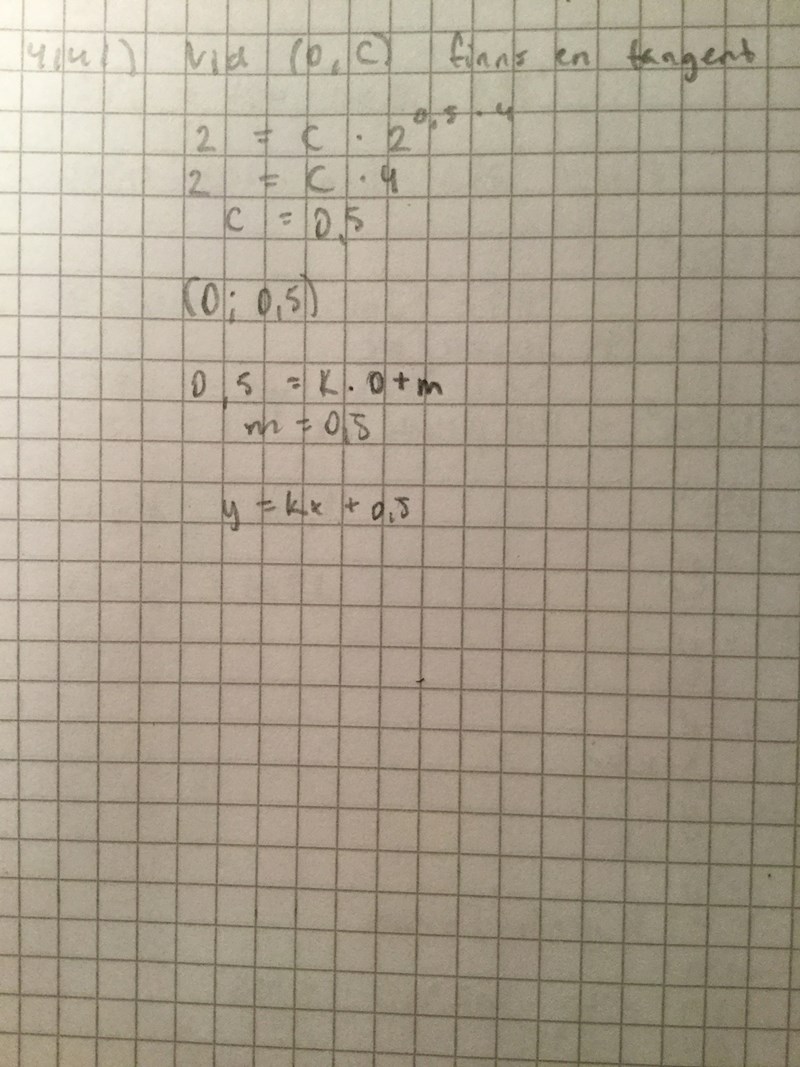 4141) Vid (0, C) finns en tangent
2 = C · 2^0,5 · 4
2 = C · 4
C = 0,5
(0; 0,5)
0,5 = k · 0 + m
m = 0,5
y = kx + 0,5